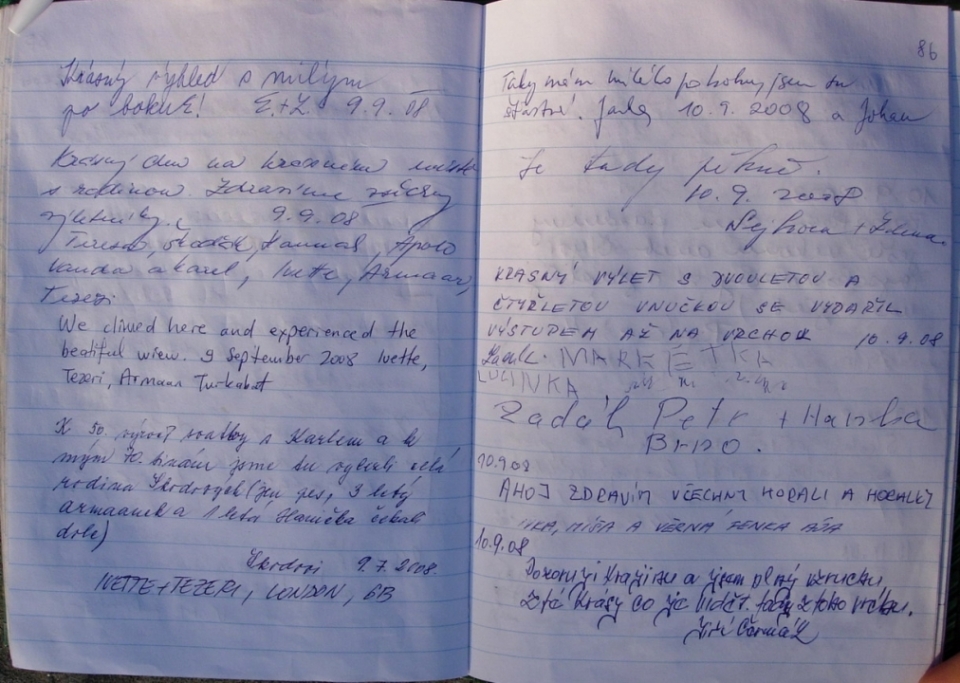 Krásný výhled s milým
po boku! E.+Z. 9.9.08
Krásný den na krásném místě
s rodinou. Zdravíme všechny
výletníky.
9.9.08
Tereso, Hannah, Apolo
Vanda a Karel, Ivette, Armaan,
Tezeri
We climed here and experienced the
beatiful wiew. 9 September 2008 Ivette,
Tezeri, Armaan Turkabat
K 50. výročí svatby s Karlem a k
mým 70. jsme tu vylezli celá
rodina Škodových (jen pes, 3 letý
Armaanek a 1 letá Hanička čekali
dole)
Škodovi 9.7.2008.
IVETTE+TEZERI, LONDON, GB
86
Taky mám milého po boku, jsem tu
šťastná. 10.9.2008 a Johan
Je tady pěkně.
10.9.2008
KRASNÝ VÝLET S DVOULETOU A
ČTYŘLETOU VNUČKOU SE VYDAŘIL
VÝSTUPEM AŽ NA VRCHOL 10.9.08
MARKETKA
LUCINKA
Zadák Petr + Hanka
Brno.
10.9.08
AHOJ ZDRAVÍM VŠECHNY HORALI A HORALKY
MÍŠA A VĚRNÁ FENKA
10.9.08
Pozoruji krajinu a jsem plný vzruchu.
Z té krásy co je vidět tady z toho vrchu.
Jiří Čermák